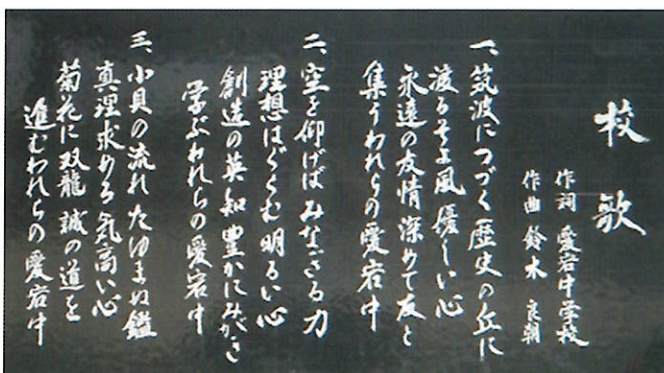 校歌
作詞 愛宕中学校
作曲 鈴木 良朝
一、筑波につづく歴史の丘に
渡るそよ風 優しい心
永遠の友情深めて友と
集うわれらの愛宕中
二、空を仰げば みなぎる力
理想はぐくむ 明るい心
創造の英知 豊かにみがき
学ぶわれらの愛宕中
三、小貝の流れ たゆまぬ鑑
真理求める 気高い心
菊花に双龍 誠の道を
進むわれらの愛宕中